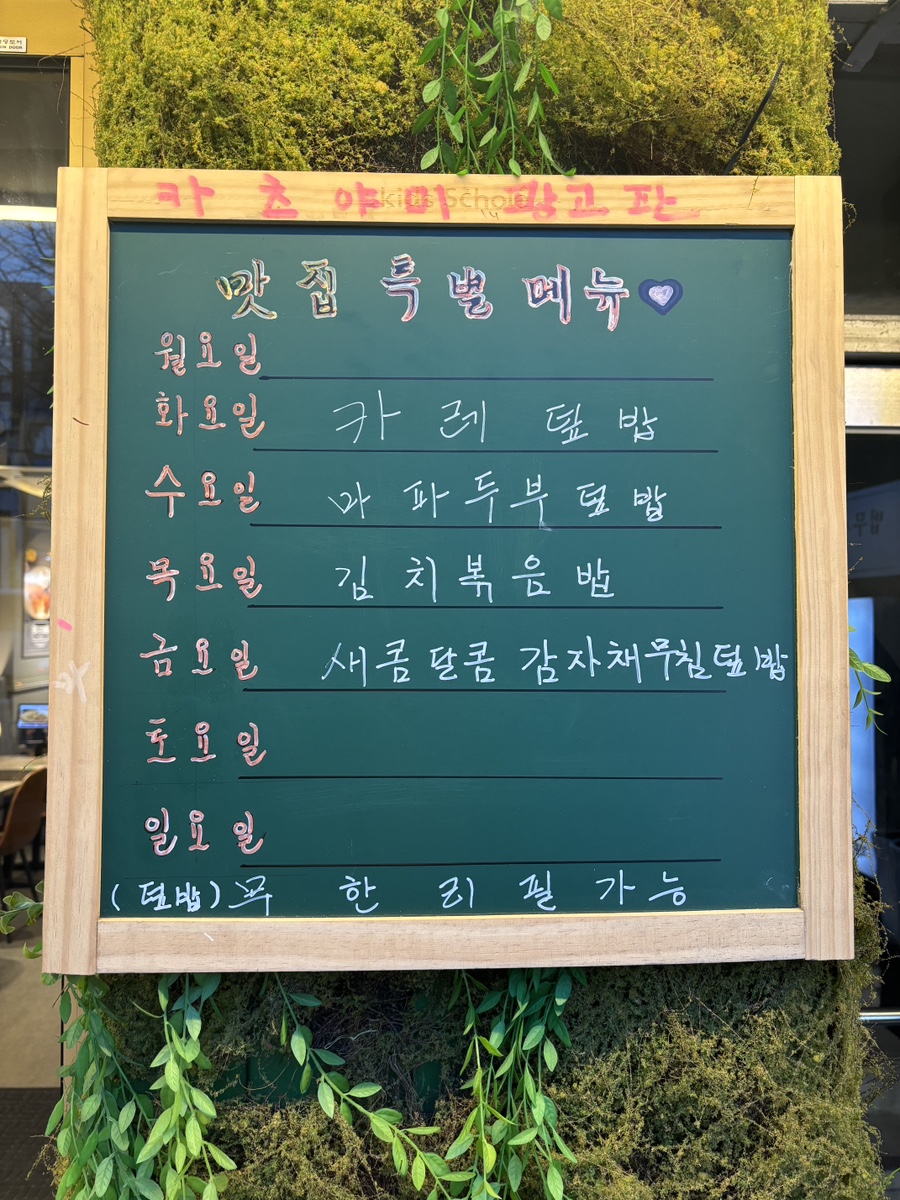 카츠야미 광고판
kids Schole
맛집 특별 메뉴
월요일
화요일 카레 덮밥
수요일 마파두부 덮밥
목요일 김치볶음밥
금요일 새콤달콤 감자채무침덮밥
토요일
일요일
(덮밥) 무한리필가능